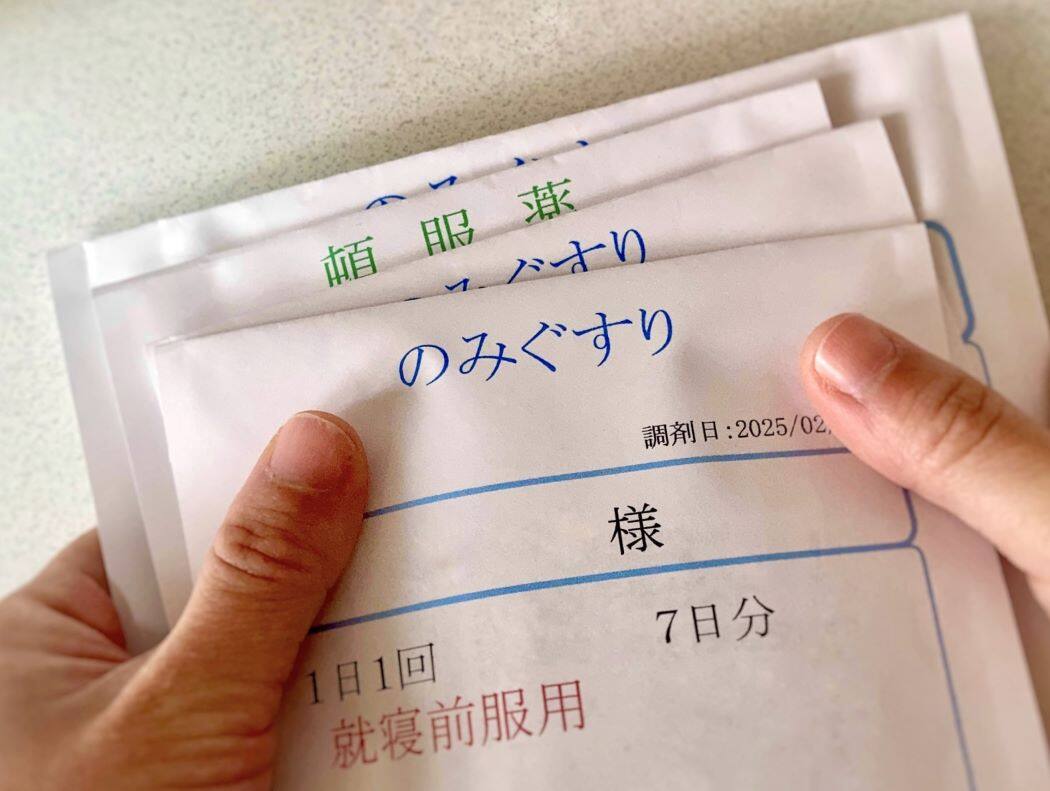 のみぐすり
頓服薬
のみぐすり
のみぐすり
調剤日:2025/02
様
7日分
1日1回
就寝前服用